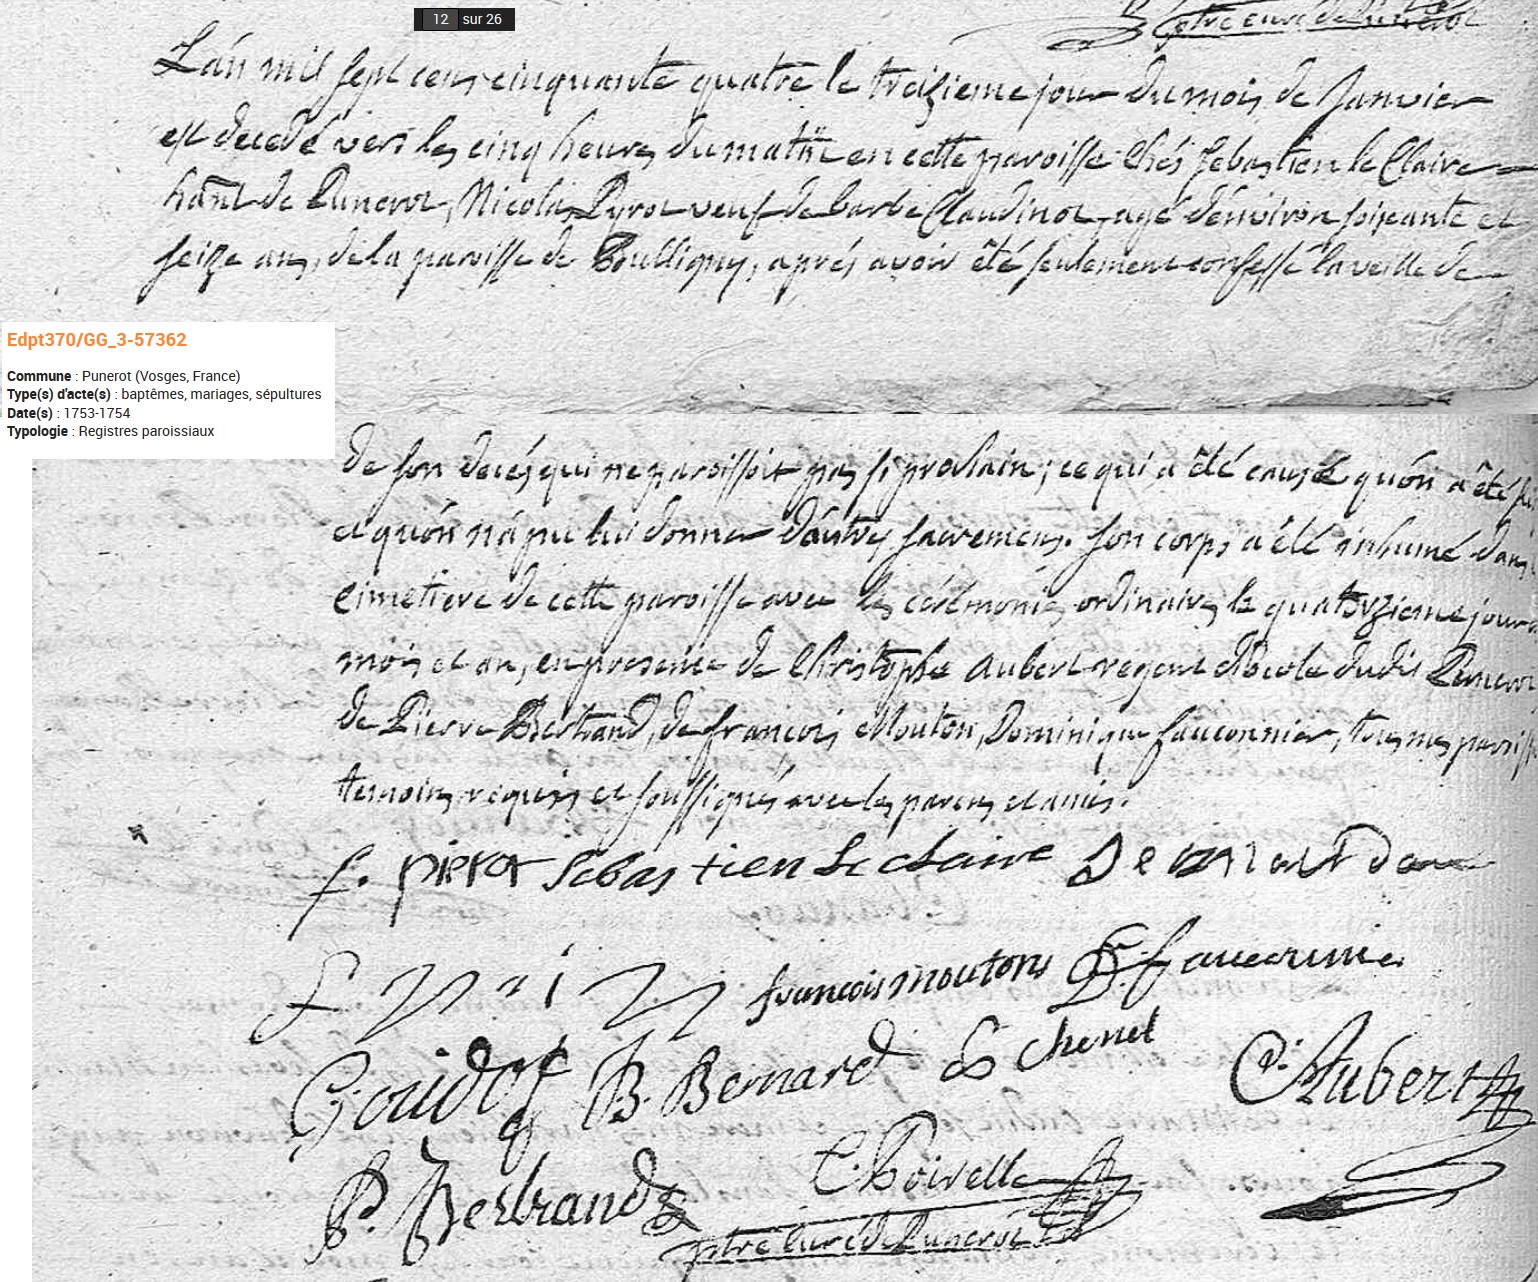 12 sur 26
ptre curé de Punerot
L'án mil sept cens cinquante quatre le treizieme jour du mois de Janvier
est decedé vers les cinq heures du matin en cette paroisse chés Sebastien le Claire
hãnt de Punerot, Nicolas Pyrot veuf de barbe Claudinot, agé dénviron soixante et
seize ans, de la paroisse de Boulligny, aprés avoir êté seulement confessé la veille de
Edpt370/GG_3-57362
Commune : Punerot (Vosges, France)
Type(s) d'acte(s) : baptêmes, mariages, sépultures
Date(s) : 1753-1754
Typologie : Registres paroissiaux
de son decés qui ne paroissoit pas si prochain ; ce qui a êté causé quón a êté
et quón n'á pu lui donner d'áutres sacremens. son corps a êté inhumé dans
cimetiere de cette paroisse avec les cérémonies ordinaires le quatorzieme jour
mois et an, en presence de Christophe Aubert regent d'école dudit Punerot
de Pierre Bertrand, de francois Mouton, Dominique fauconnier, tous mes paroiss
temoins requis et soussignés avec les parens et amis.
f. pierot Sebastien Le claire
francois moutons D. fauconnier
Goudot B. Bernard chenel
C. Aubert
P. Bertrand C. Poirelle
ptre curé de Punerot